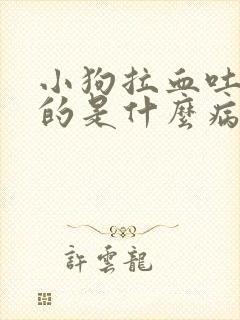 小狗拉血吐
的是什麼病
許雲龍